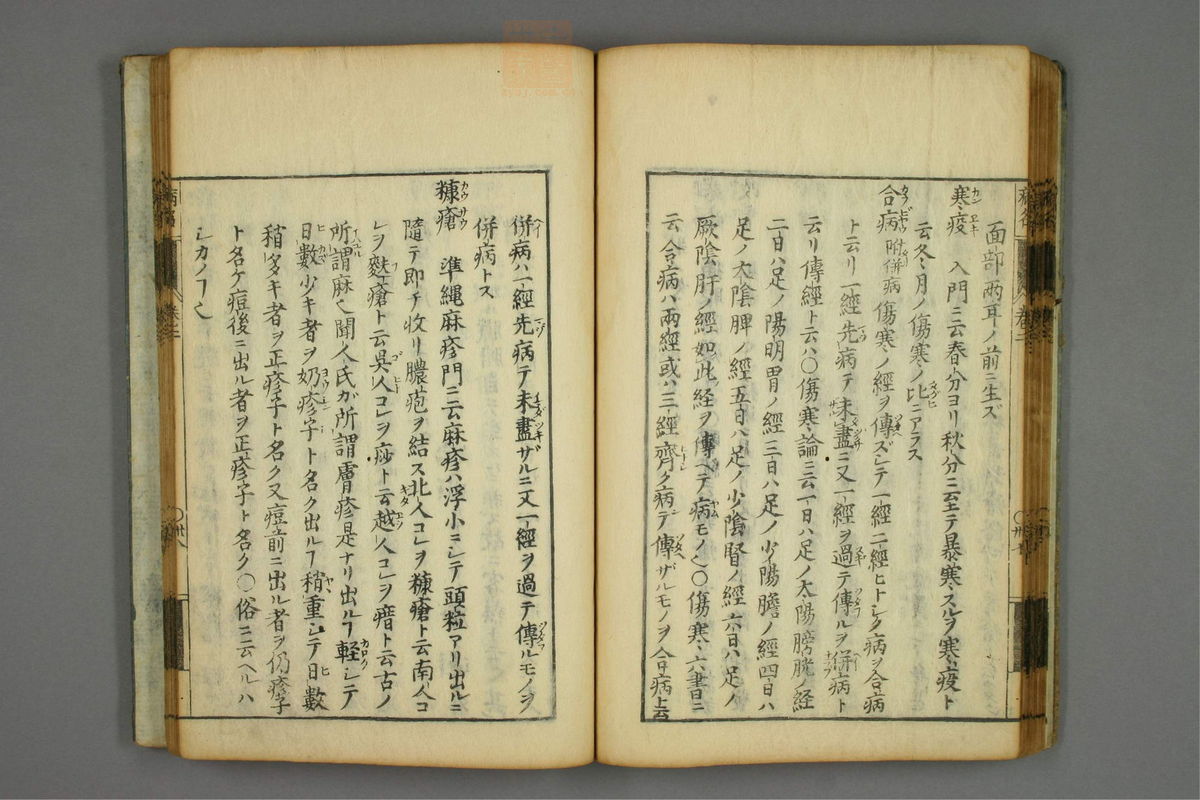 面部兩耳ノ前ニ生ズ
寒疫 入門ニ云春分ヨリ秋分ニ至テ暴寒スルヲ寒疫ト
云冬月ノ傷寒ノ比ニアラス
合病 附併病 傷寒ノ經ヲ傳ズシテ一經二經ヒトシク病ヲ合病
ト云リ一經先病テ未盡ニ又一經ヲ過テ傳ルヲ併病ト
云リ傳經ト云ハ〇傷寒論ニ云一日ハ足ノ太陽膀胱ノ經
二日ハ足ノ陽明胃ノ經三日ハ足ノ少陽膽ノ經四日ハ
足ノ太陰脾ノ經五日ハ足ノ少陰腎ノ經六日ハ足ノ
厥陰肝ノ經如此経ヲ傳ヘテ病モノ也〇傷寒六書ニ
云合病ハ兩經或ハ三經齊ク病テ傳ザルモノヲ合病ト云
併病ハ一經先病テ未盡ザルニ又一經ヲ過テ傳ルモノヲ
併病トス
糠瘡 準縄麻疹門ニ云麻疹ハ浮小ニシテ頭粒アリ出ルニ
隨テ即チ收リ膿疱ヲ結ス北人コレヲ糠瘡ト云南人コ
レヲ麩瘡ト云呉人コレヲ痧ト云越人コレヲ瘄ト云古ノ
所謂麻也聞人氏ガ所謂膚疹是ナリ出ルヿ軽シテ
日數少キ者ヲ奶疹子ト名ク出ルヿ稍重シテ日數
稍多キ者ヲ正疹子ト名ク又痘前ニ出ル者ヲ仍疹子
ト名ケ痘後ニ出ル者ヲ正疹子ト名ク〇俗ニ云ヘルハ
シカノヿ也